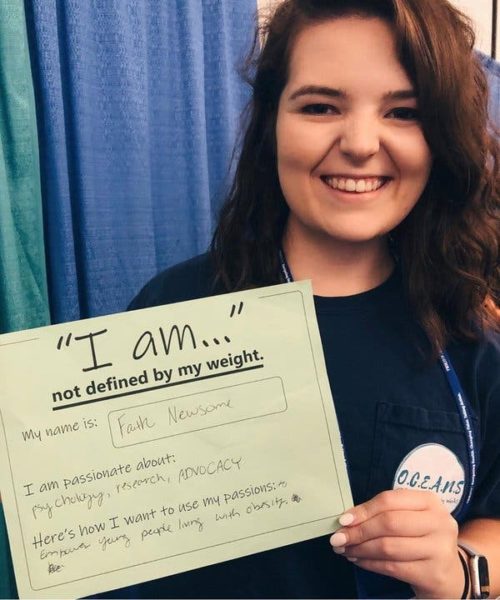 "I am..."
not defined by my weight.
My name is: Faith Newsome
I am passionate about:
psychology, research, ADVOCACY
Here's how I want to use my passions: to
Empower young people living with obesity.
O.C.E.A.N.S